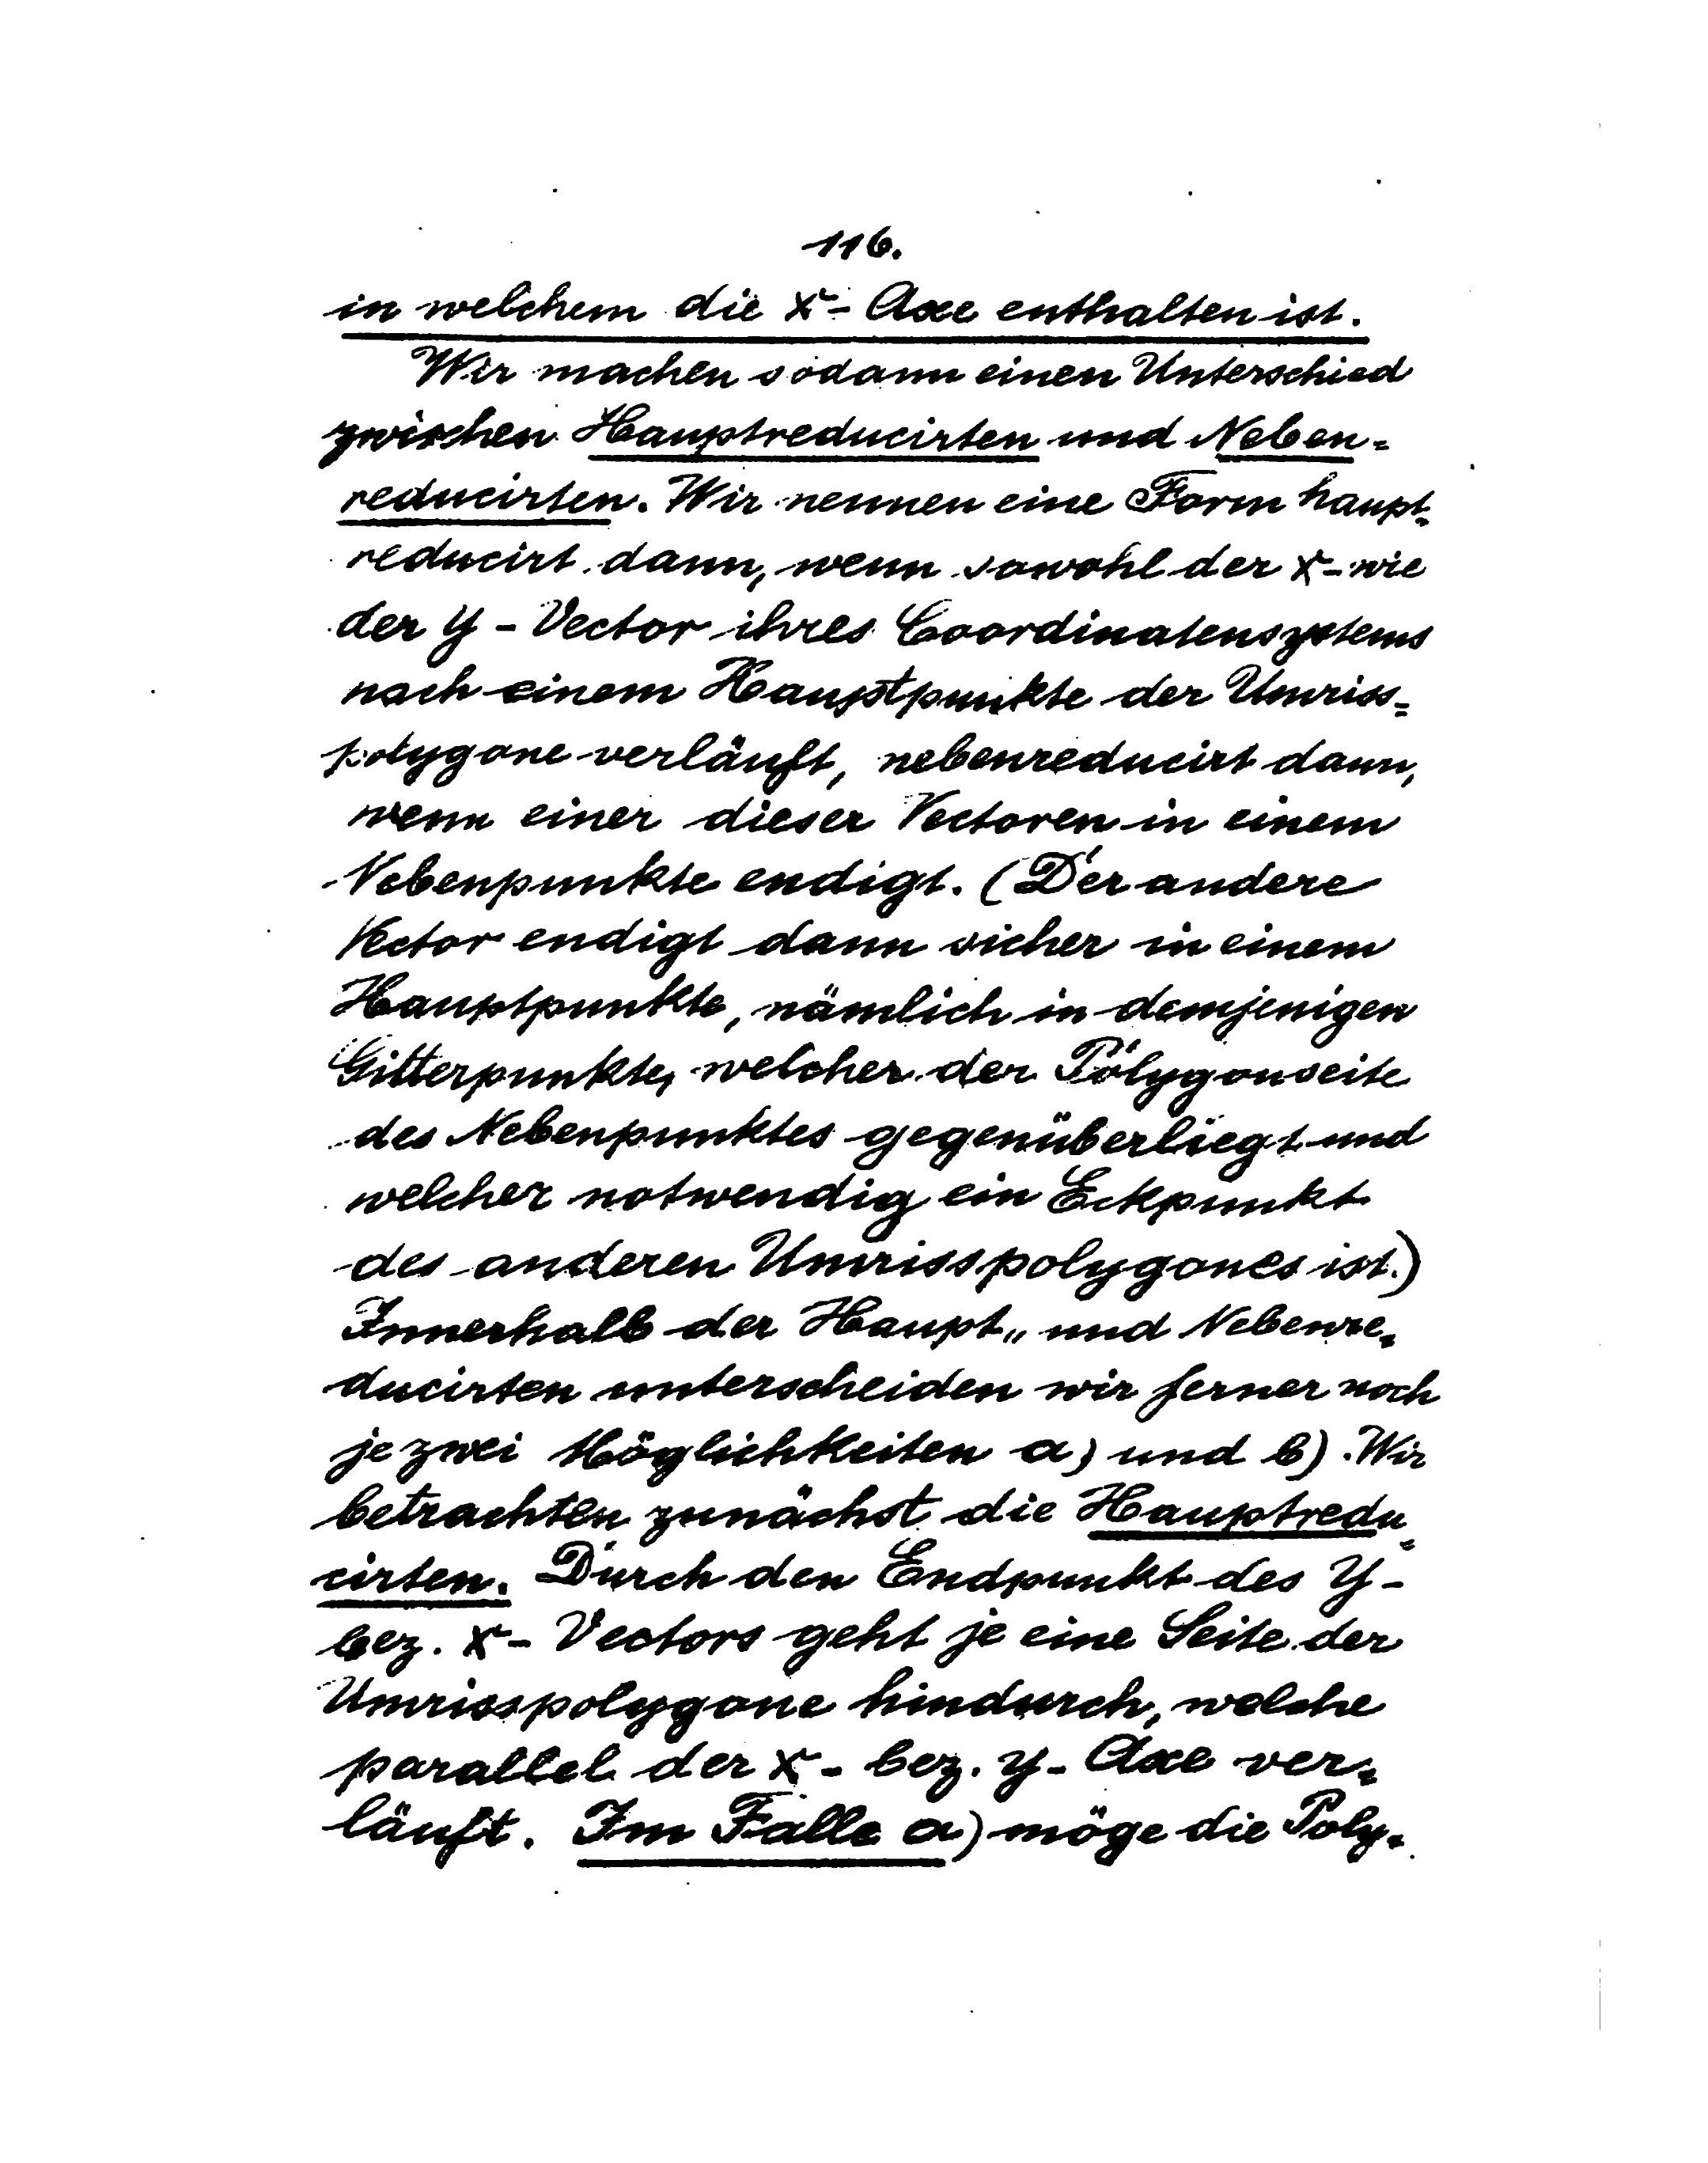 116.
in welchem die x - Axe enthalten ist.
Wir machen sodann einen Unterschied
zwischen Hauptreducirten und Neben-
reducirten. Wir nennen eine Form haupt-
reducirt dann, wenn sowohl der x - wie
der y - Vector ihres Coordinatensystems
nach einem Hauptpunkte der Umriss-
polygone verläuft, nebenreducirt dann,
wenn einer dieser Vectoren in einem
Nebenpunkte endigt. (Der andere
Vector endigt dann sicher in einem
Hauptpunkte, nämlich in demjenigen
Gitterpunkte, welcher der Polygonseite
des Nebenpunktes gegenüberliegt und
welcher notwendig ein Eckpunkt
des anderen Umrisspolygones ist.)
Innerhalb der Haupt- und Nebenre-
ducirten unterscheiden wir ferner noch
je zwei Möglichkeiten a) und b). Wir
betrachten zunächst die Hauptredu-
cirten. Durch den Endpunkt des y -
bez. x - Vectors geht je eine Seite der
Umrisspolygone hindurch, welche
parallel der x - bez. y - Axe ver-
läuft. Im Falle a) möge die Poly-